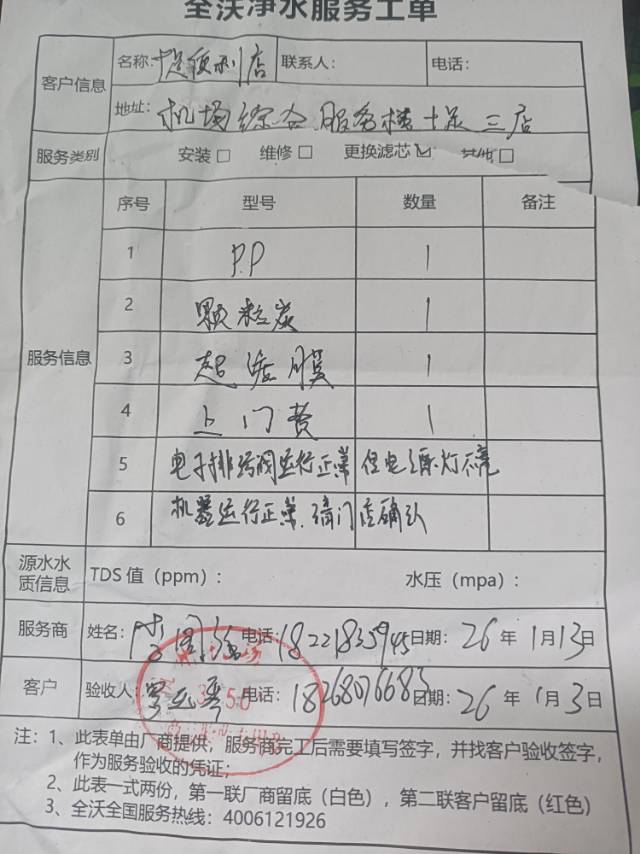 全沃净水服务工单
客户信息
名称: 便利店 联系人: 电话:
地址: 机场综合服务楼十足三店
服务类别 安装□ 维修□ 更换滤芯☑ 其他□
服务信息
序号 型号 数量 备注
1 P.P 1
2 颗粒炭 1
3 超滤膜 1
4 上门费 1
5 电子排污阀运行正常 但电源灯不亮
6 机器运行正常. 请门店确认
源水水质信息
TDS 值 (ppm): 水压 (mpa):
服务商 姓名: 电话: 18221835945 日期: 26 年 1月13日
客户 验收人: 电话: 18268076683 日期: 26 年 1月3日
注: 1、此表单由厂商提供, 服务商完工后需要填写签字, 并找客户验收签字,
作为服务验收的凭证;
2、此表一式两份, 第一联厂商留底 (白色), 第二联客户留底 (红色)
3、全沃全国服务热线: 4006121926